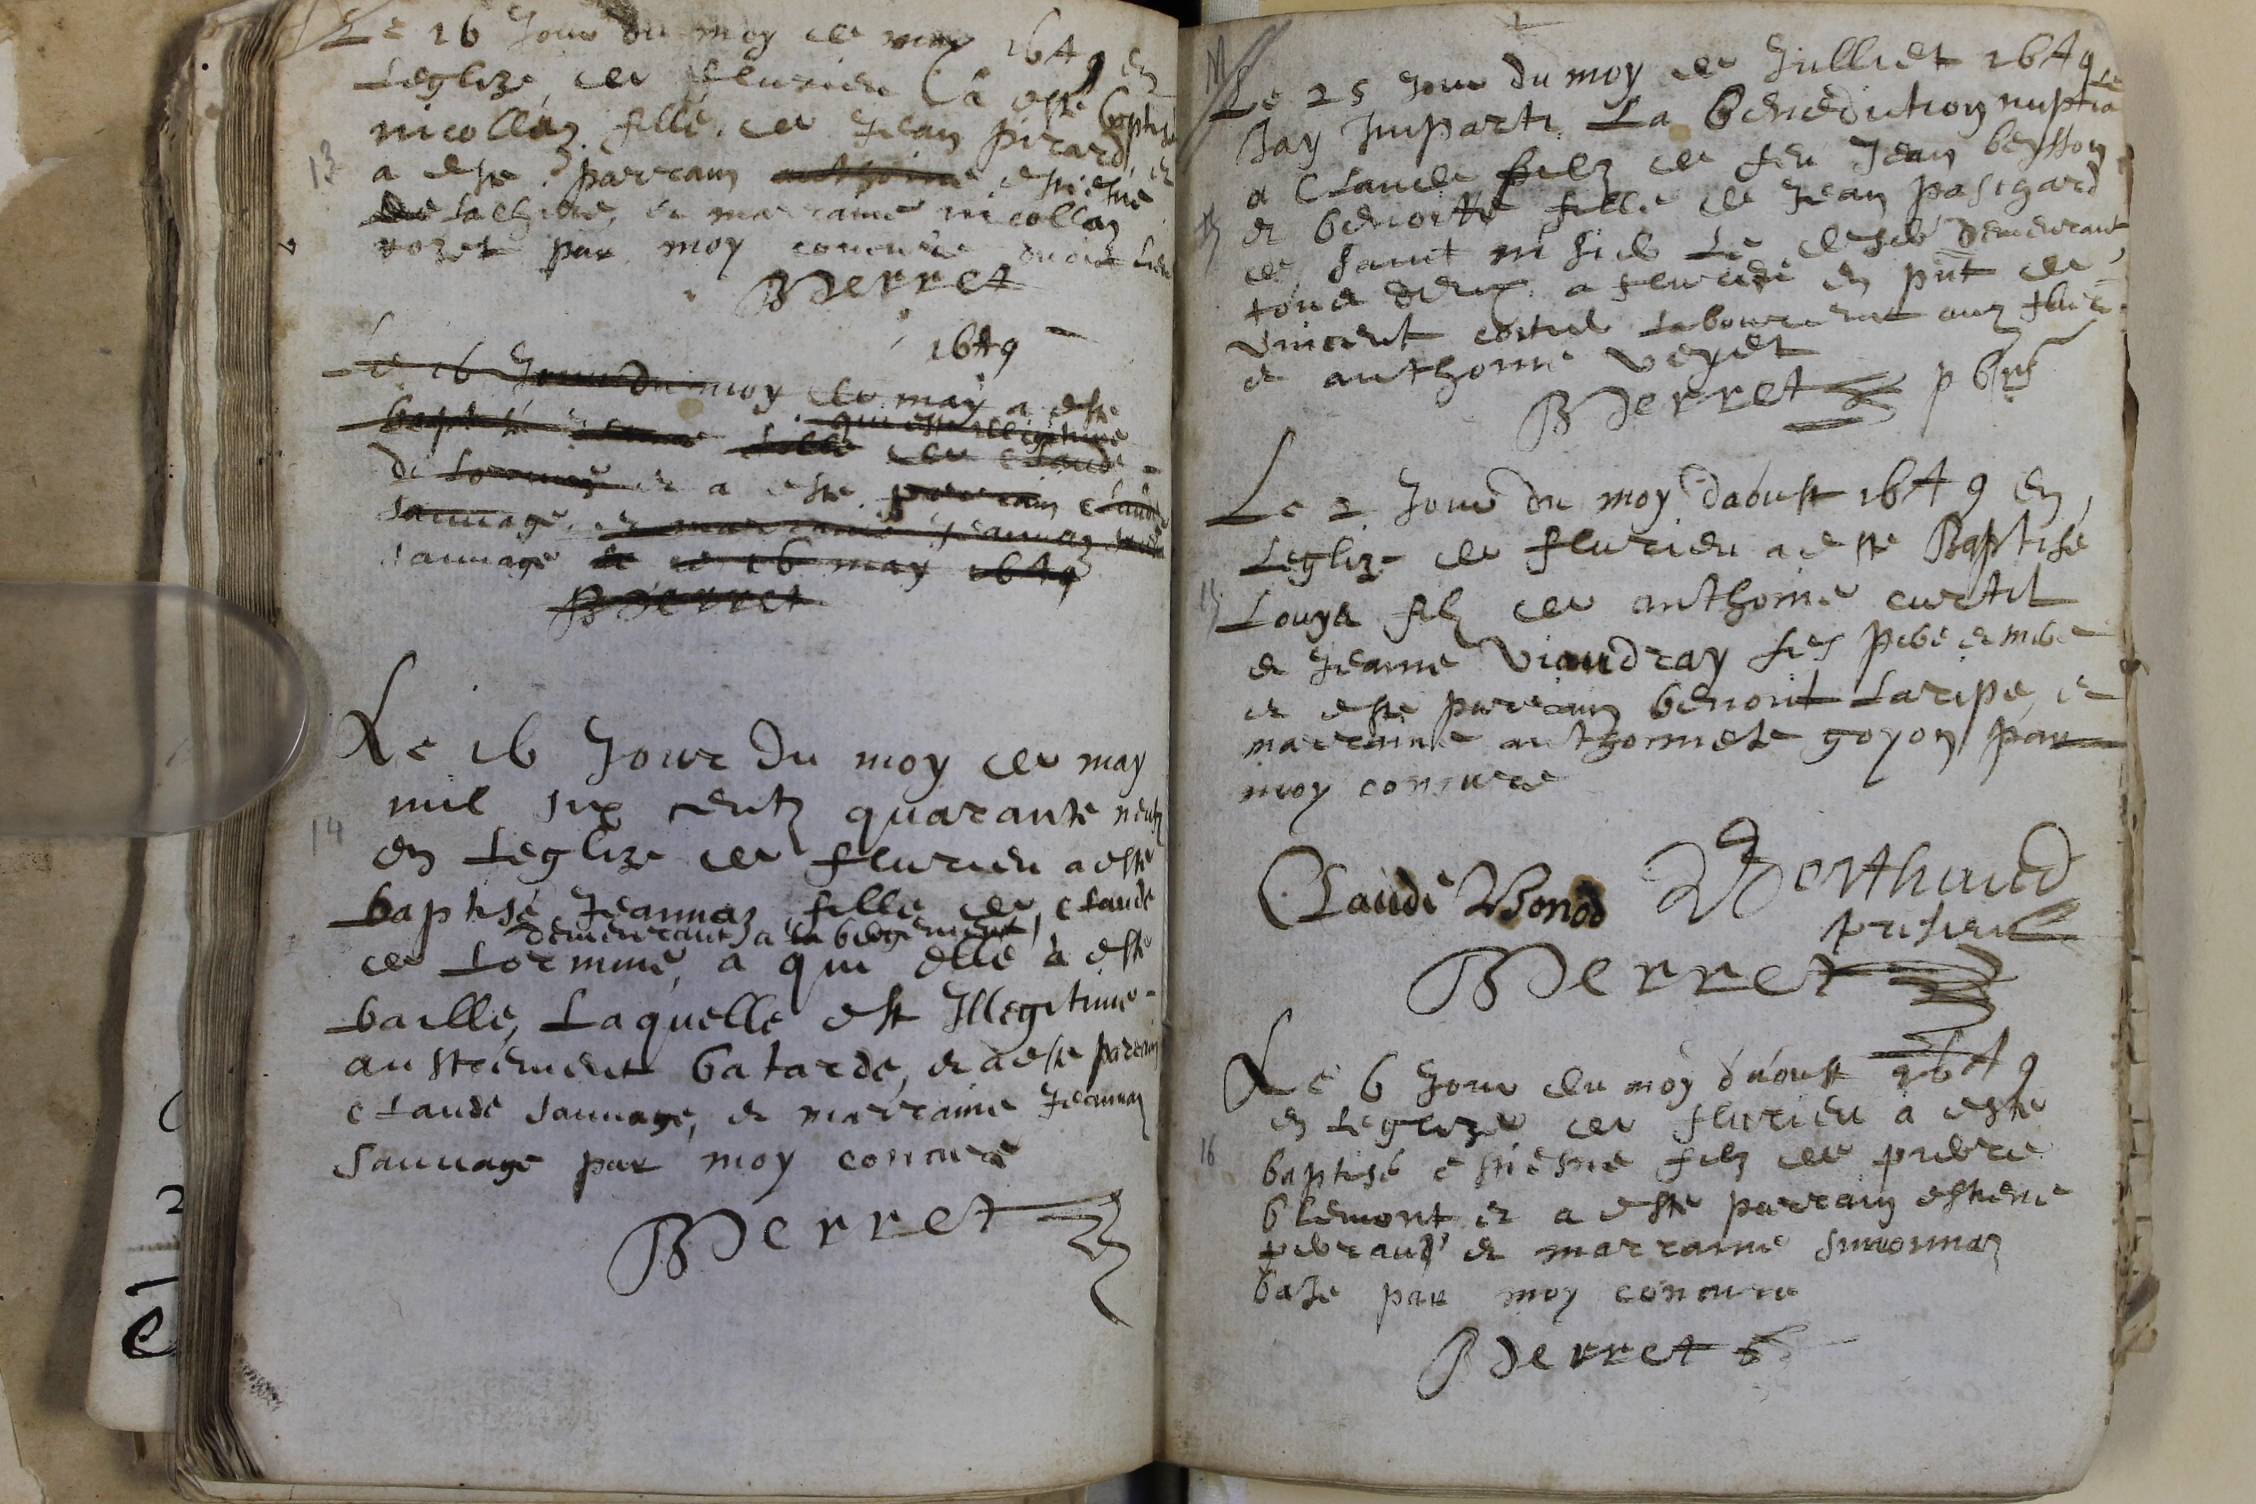 Le 16 Jour du moy de may 1649 en
Leglize de flurieu a esté baptisé
13
nicollaz fille de Jean pirard, et
a esté parrain anthoine estiene
de lachina, et marraine nicollaz
rozet par moy concuré
Berret
1649
Le 16 Jour du moy de may a esté
baptisé Jeanne fille de Claude
qui est illegitime
de Lormne et a esté parrain Claude
Sauuage, et marraine Jeannaz
Sauuage le 16 may 1649
Berret
Le 16 Jour du moy de may
mil six centz quarante neufz
14
en Leglize de flurieu a esté
baptisé Jeannaz fille de Claude
demeurant a la bergement
de Lormine, a qui elle a esté
baillé, Laquelle est Illegitime
austrement batarde, et a esté parrain
Claude Sauuage, et marraine Jeannaz
Sauuage par moy concuré
Berret
M
Le 25 Jour du moy de Julliet 1649
Jay Imparti La benediction nuptiale
a Claude filz de feu Jean beysson
et benoitte fille de Jean paschard
de saint
tous deux a flurieu en pnt de
Vincent cortil Laboureur
et anthoine Veyet
Berret pbre
Le 2 Jour du moy daoust 1649 en
Leglize de flurieu a esté Baptisé
15
Louys filz de anthoine curtil
et Jeanne Viaudray ses pere et mere
et esté parrain benoit Laripe, et
marraine anthoinete goyon par
moy concuré
Claude Bonod Berthaud
Berret
Le 6 Jour du moy daoust 1649
en Leglize de flurieu a esté
16
baptisé estiesne filz de pierre
blemont et a esté parrain estiene
et marraine Simonnaz
baze par moy concuré
Berret